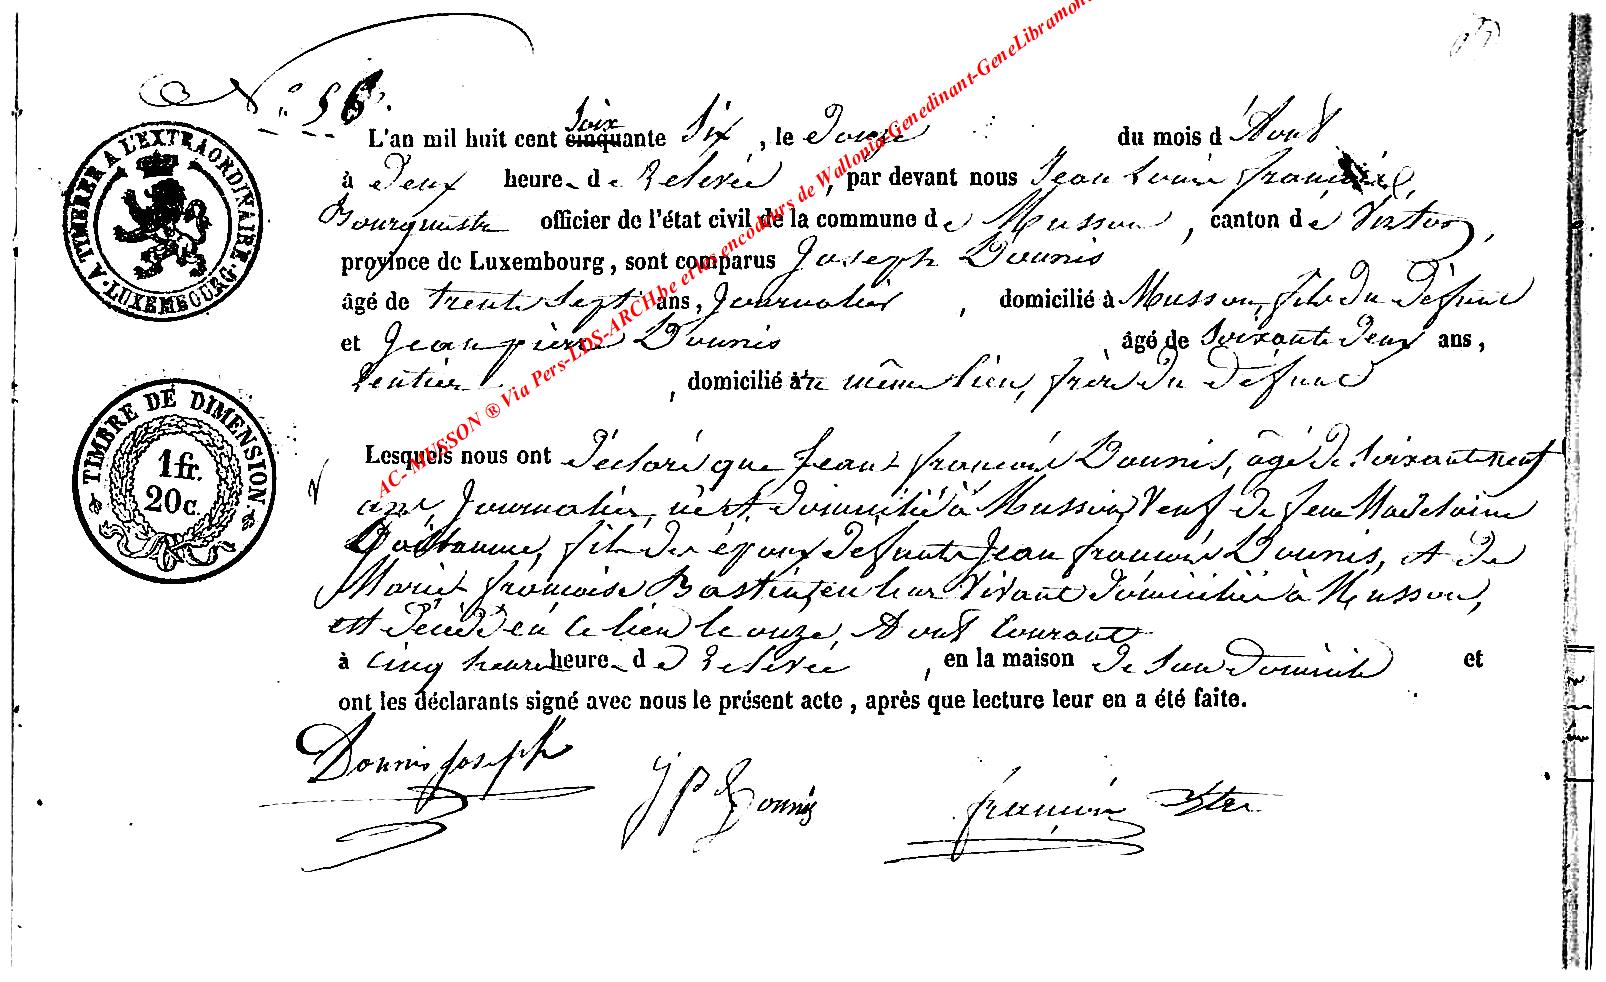 N.° 56.
L'an mil huit cent cinquante Soix Six, le Douze du mois d'Août
à Deux heures de Relevée, par devant nous Jean Louis françois,
Bourgmestre officier de l'état civil de la commune de Musson, canton de Virton,
province de Luxembourg, sont comparus Joseph Dounis
âgé de trente Sept ans, Journalier, domicilié à Musson, fils du Défunt
et Jean pierre Dounis âgé de Soixante Deux ans,
Rentier, domicilié au même lieu, frère du Défunt
Lesquels nous ont Déclaré que Jean françois Dounis, âgé de Soixante neuf
ans Journalier, né et domicilié à Musson Veuf de feue Madelaine
fils des époux défunts Jean françois Dounis, et de
Marie françoise Bastin, en leur Vivant domiciliés à Musson,
est Décédé en ce lieu le onze, Août Courant
à cinq heures heure de Relevée, en la maison de Son Domicile et
ont les déclarants signé avec nous le présent acte, après que lecture leur en a été faite.
Dounis Joseph
J P Dounis
françois Bter
A TIMBRER A L'EXTRAORDINAIRE
LUXEMBOURG
TIMBRE DE DIMENSION
1 fr.
20 c.
AC-MUSSON ® Via Pers-LDS-ARCH.be et les encodeurs de Wallonia-Genedinant-GeneLibramont